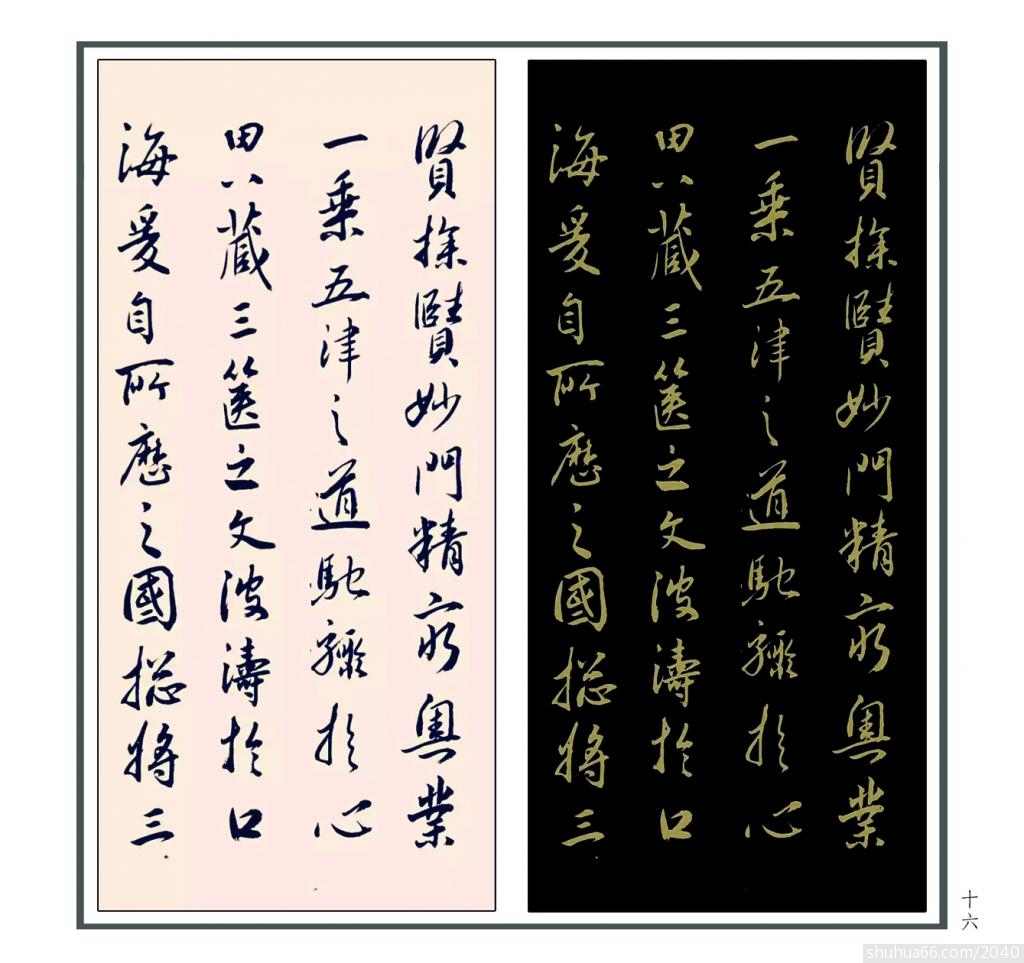 賢探賾妙門精窮奧業
一乘五律之道馳驟於心
田八藏三篋之文波濤於口
海爰自所歷之國揔將三
賢探賾妙門精窮奧業
一乘五律之道馳驟於心
田八藏三篋之文波濤於口
海爰自所歷之國揔將三
十六
shuhua66.com/2040